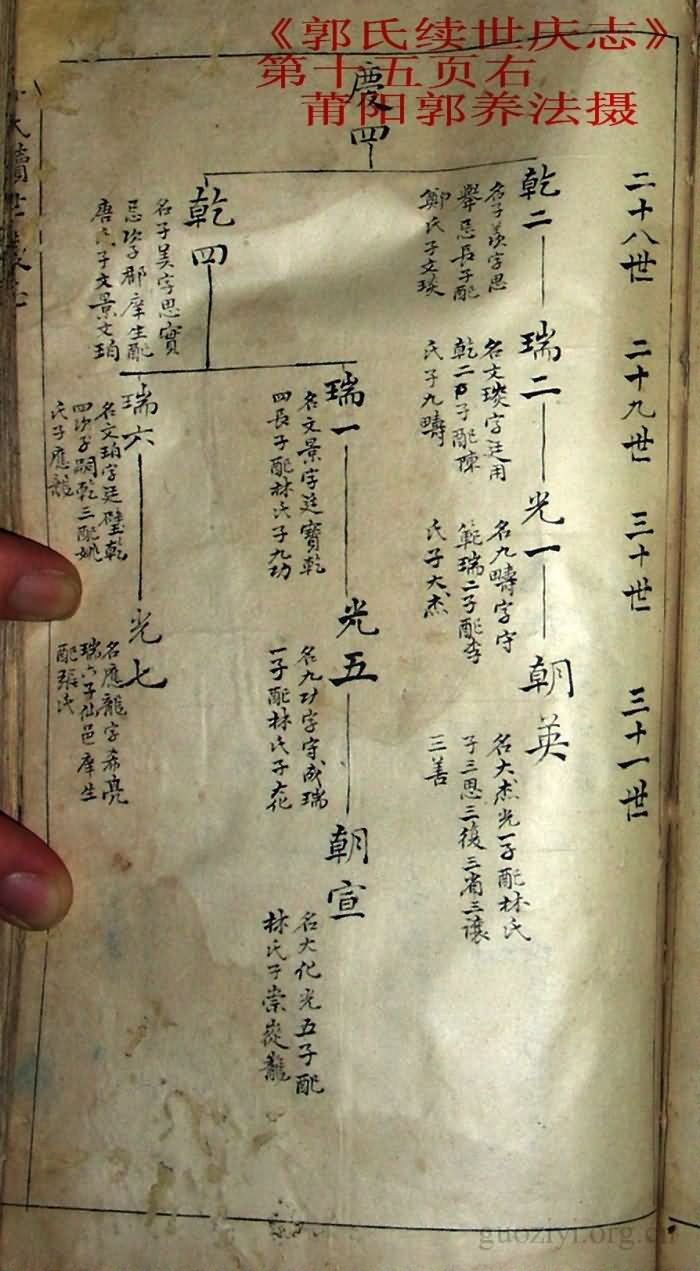 《郭氏续世庆志》
第十五页右
莆阳郭养法摄
慶四
二十八世
二十九世
三十世
三十一世
乾二
名子羨字思
舉忌長子配
鄭氏子文琰
瑞二
名文琰字廷用
乾二子配陳
氏子九疇
光一
名九疇字守
範瑞二子配李
氏子大杰
朝英
名大杰光一子配林氏
子三思三復三省三讓
三善
乾四
名子美字思實
忌次子郡庠生配
唐氏子文景文珀
瑞一
名文景字廷寶乾
四長子配林氏子九功
光五
名九功字守成瑞
一子配林氏子大化
朝宣
名大化光五子配
林氏子崇龍
瑞六
名文珀字廷璧乾
四次子嗣乾三配姚
氏子應龍
光七
名應龍字希亮
瑞六子仙邑庠生
配張氏
氏續世慶志
guoziyi.org.cn